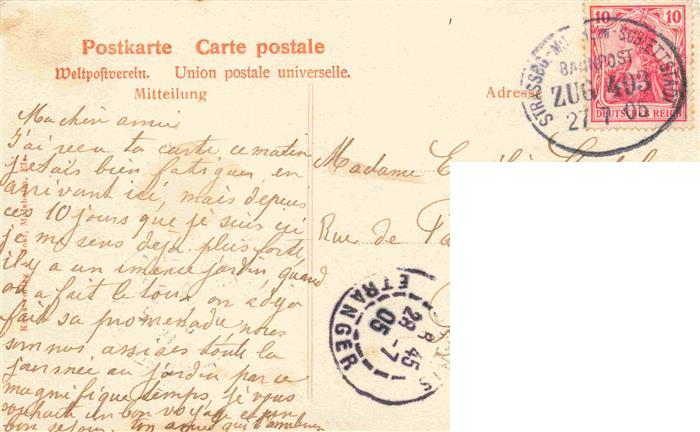 Postkarte Carte postale
Weltpostverein. Union postale universelle.
Mitteilung
Adresse
10 10
DEUTSCHES REICH
STRASSBG.-MOLSHEIM-SCHLETTSTADT
BAHNPOST
ZUG 493
27 7 05
Ma chère amie
J'ai reçu ta carte ce matin
j'étais bien fatiguée en
arrivant ici, mais depuis
ces 10 jours que je suis ici
je me sens déjà plus forte
il y a un imence jardin quand
on a fait le tour on a déjà
fait sa promenade nous
sommes assises toute la
journée au jardin par ce
magnifique temps, je vous
souhaite un bon voyage et un
bon séjour. Ton amie qui t'embrasse
Madame
Rue de
ETRANGER
8 45
28 -7
05